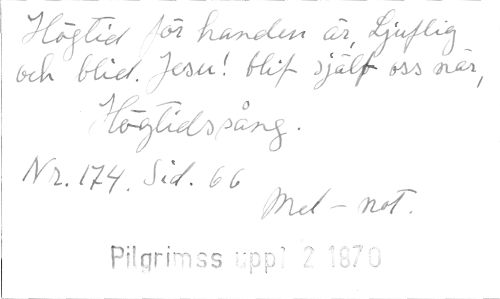 Högtid för handen är, Ljuflig
och blid. Jesu! blif sjelf oss när,
Högtidssång.
Nr. 174. Sid. 66
Mel-not.
Pilgrimss uppl 2 1870